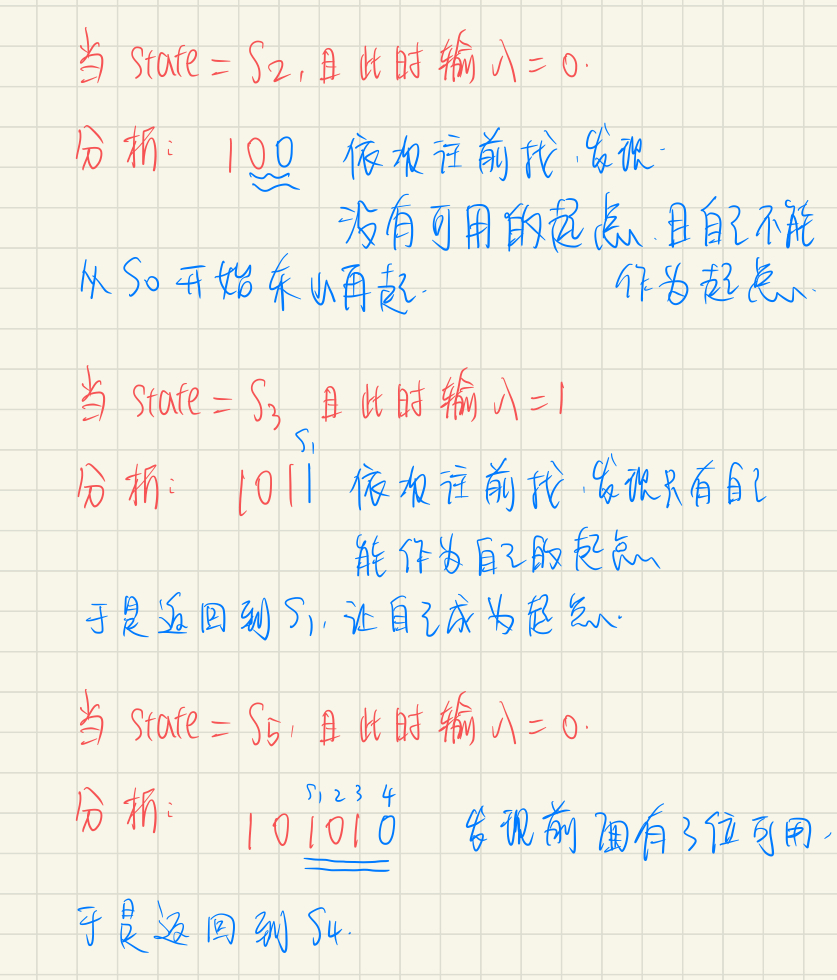 当 state = S2, 且此时输入 = 0.
分析: 100 依次往前找, 发现
没有可用的起点, 且自己不能
从 S0 开始东山再起. 作为起点.
当 state = S3 且此时输入 = 1
S1
分析: 1011 依次往前找, 发现只有自己
能作为自己的起点
于是返回到 S1, 让自己成为起点.
当 state = S5, 且此时输入 = 0.
S1 2 3 4
分析: 101010 发现前面有3位可用,
于是返回到 S4.